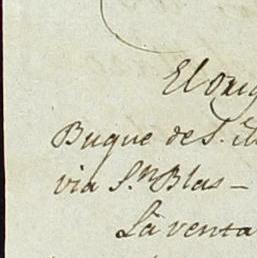 El orig
Buque de S.
via S.n Blas -
La venta